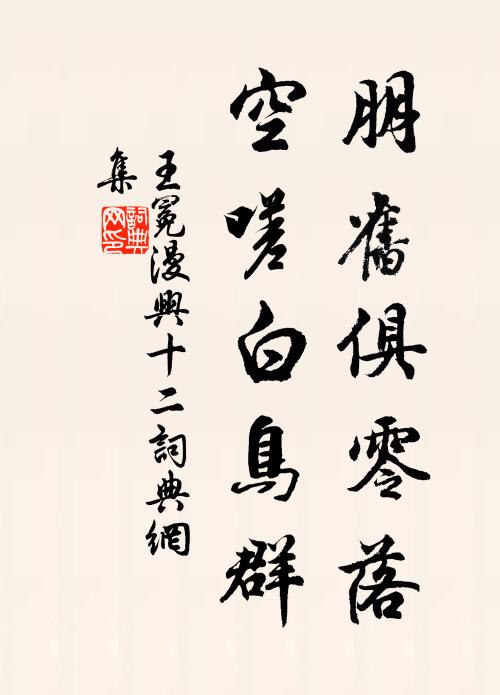 朋舊俱零落
空嗟白鳥群
王冕漫興十二詞典網
集
詞典网印